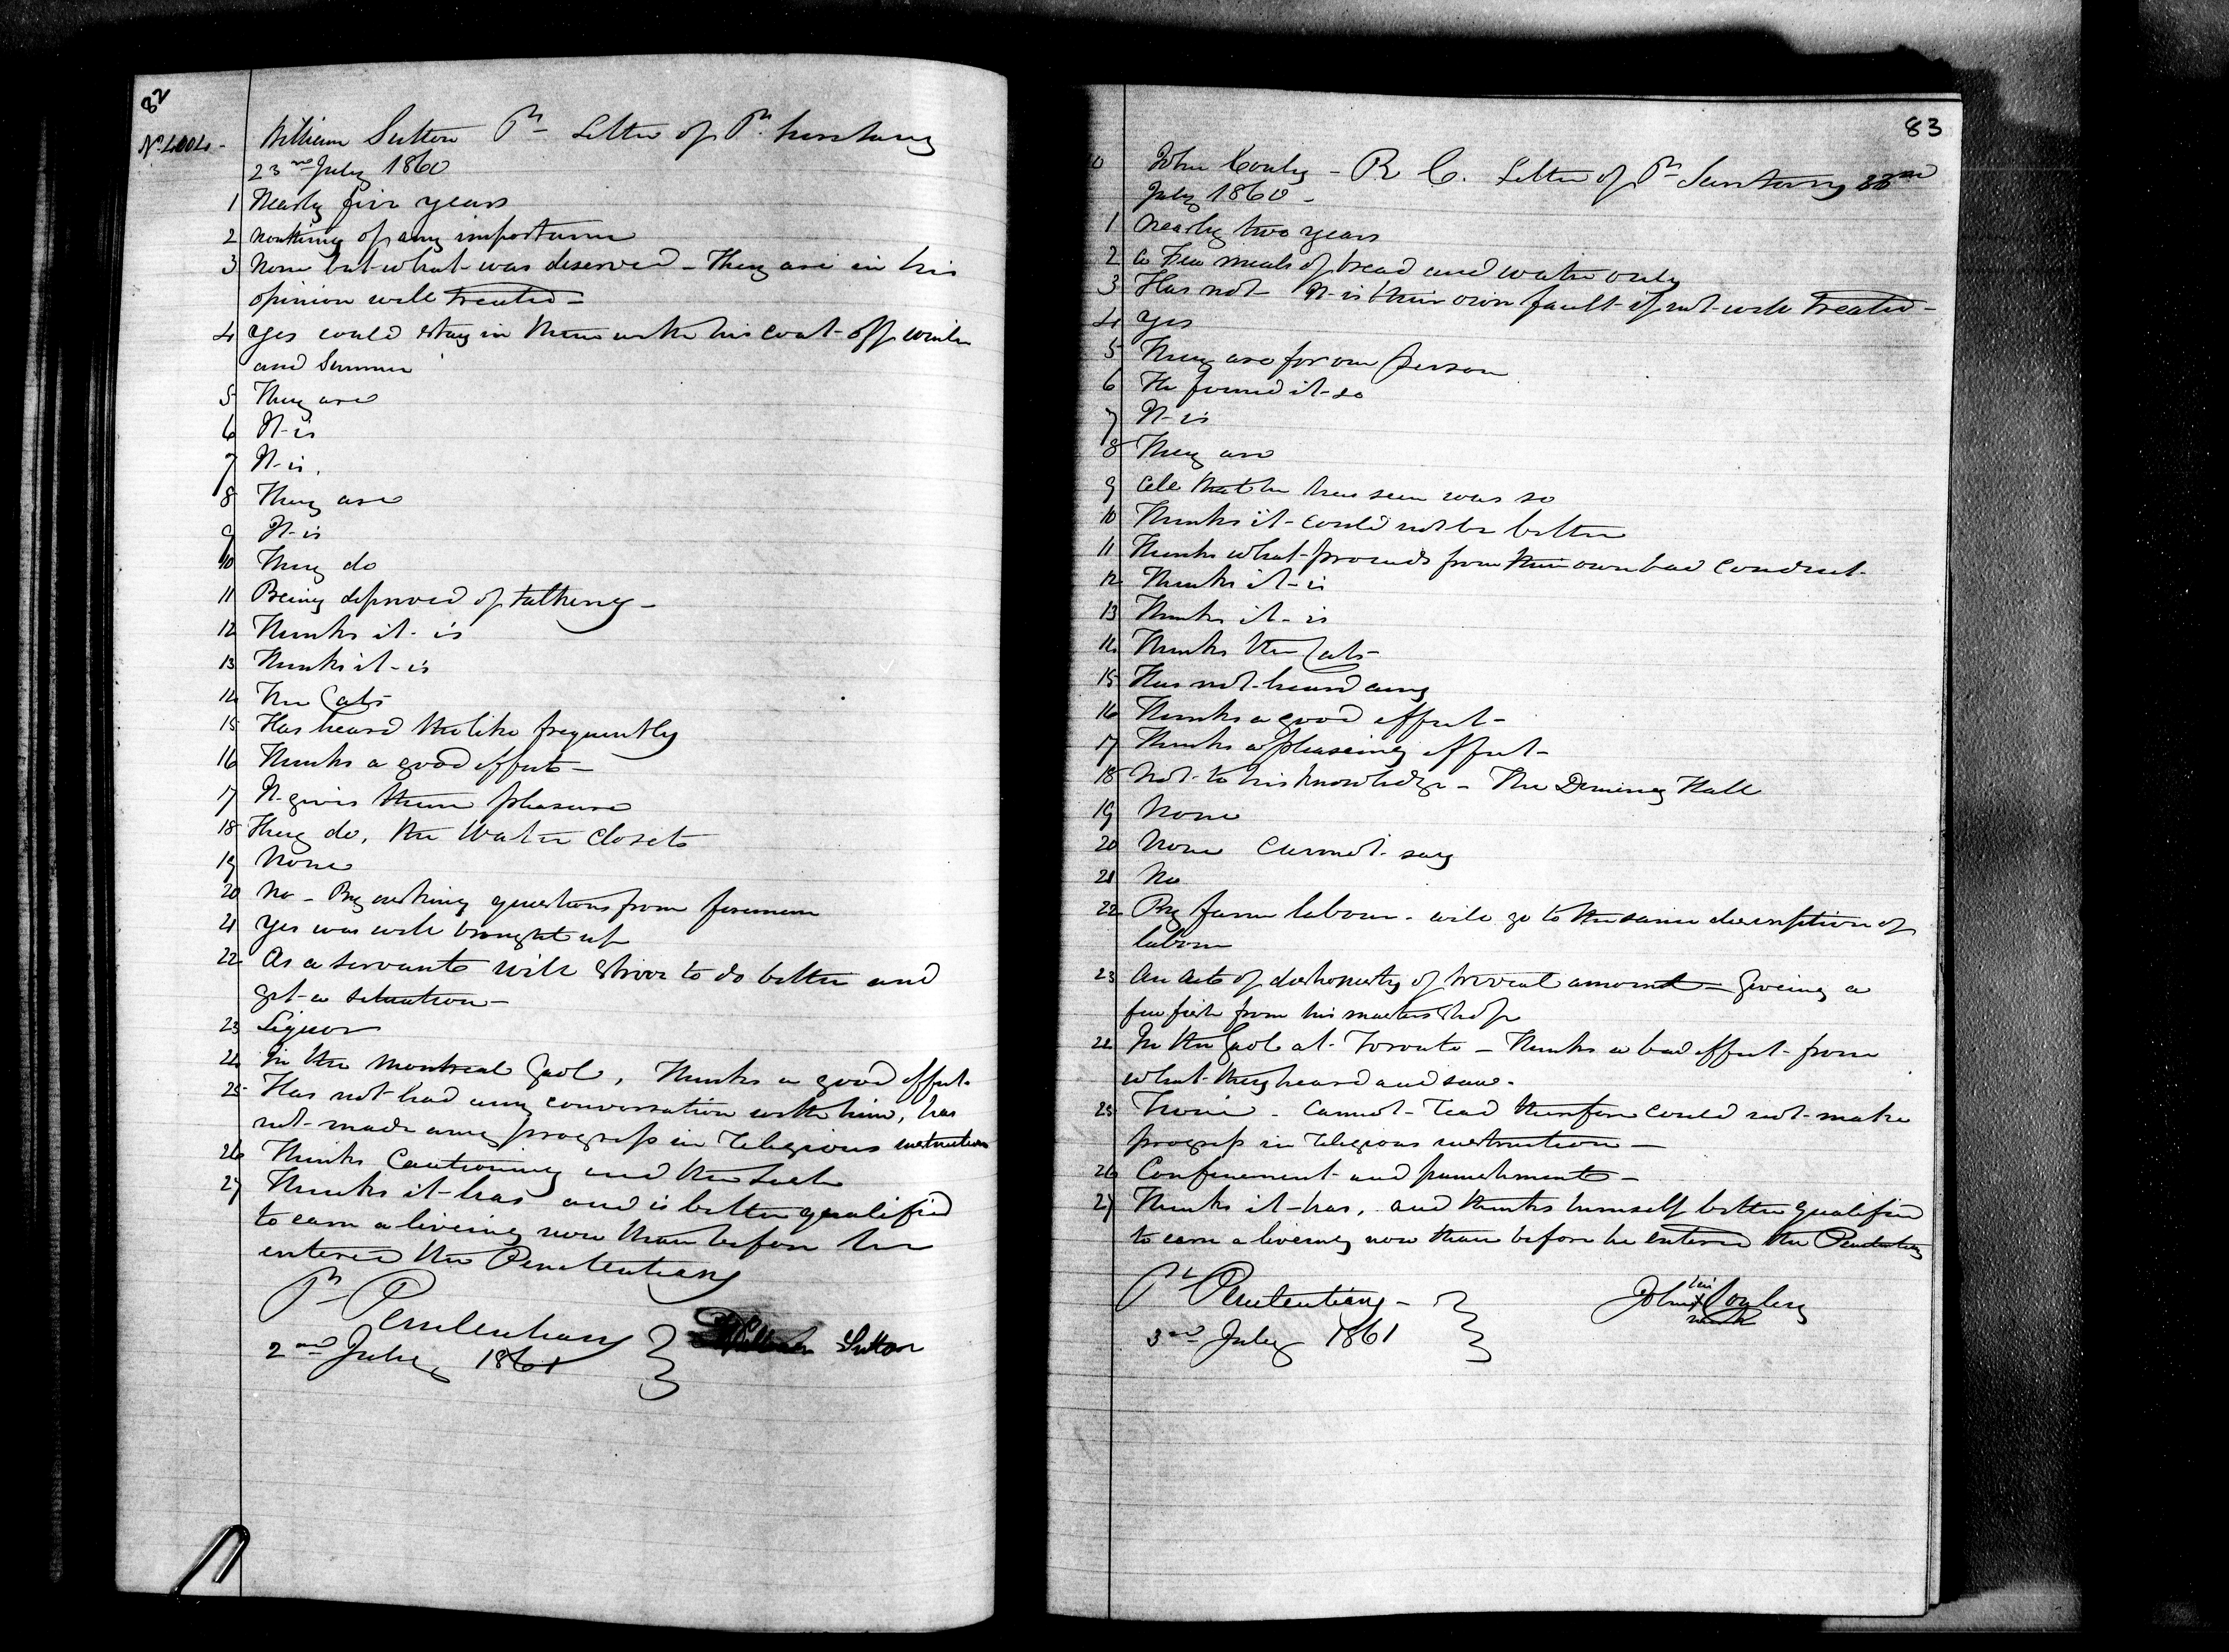 82
William Sutton Pr Letter of Pr Secretary
23rd July 1860
1 Nearly five years
2 nouthing of any importance
3 None but what was deserved - They are in his
opinion well treated -
4 Yes could stay in them with his coat off winter
and Summer
5 They are
6 It is
7 It is.
8 They are
9 It is
10 They do
11 Being deprived of talking -
12 Thinks it is
13 Thinks it is
14 The Cats
15 Has heard the like frequently
16 Thinks a good effect -
17 It gives them pleasure
18 They do, the Water Closets
19 None
20 No - By asking questions from foremen
21 Yes was well brought up
22 As a servant will strive to do better and
get a situation -
23 Liquor
24 In the Montreal Gaol, Thinks a good effect.
25 Has not had any conversation with him, has
not made any progress in religious instruction
26 Thinks Cautioning and the Lash
27 Thinks it has and is better qualified
to earn a livering now than before he
entered the Penitentiary
Pr Penitentiary
2nd July 1861
William Sutton
83
John Conley - R C. Letter of Pr Secretary 23rd
July 1860 -
1 Nearly two years
2 a Few meals of bread and water only
3 Has not It is their own fault if not well treated -
4 Yes
5 They are for one person
6 He found it so
7 It is
8 They are
9 All that he has seen was so
10 Thinks it could not be better
11 Thinks what proceeds from their own bad conduct.
12 Thinks it is
13 Thinks it is
14 Thinks the Cats
15 Has not heard any
16 Thinks a good effect -
17 Thinks a pleaseing effect -
18 Not to his knowledge - The Dining Hall
19 None
20 None Cannot say
21 No
22 By farm labour - will go to the same description of
labour
23 An act of dishonesty of trivial amount - Giveing a
few fish from his masters shop
24 In the Gaol at Toronto - Thinks a bad effect from
what they heard and saw.
25 - Cannot read therefore could not make
progress in religious instruction -
26 Confinement and punishments -
27 Thinks it has, and thinks himself better qualified
to earn a livering now than before he entered the Penitentiary
Pr Penitentiary -
3rd July 1861
his
John X Conley
mark